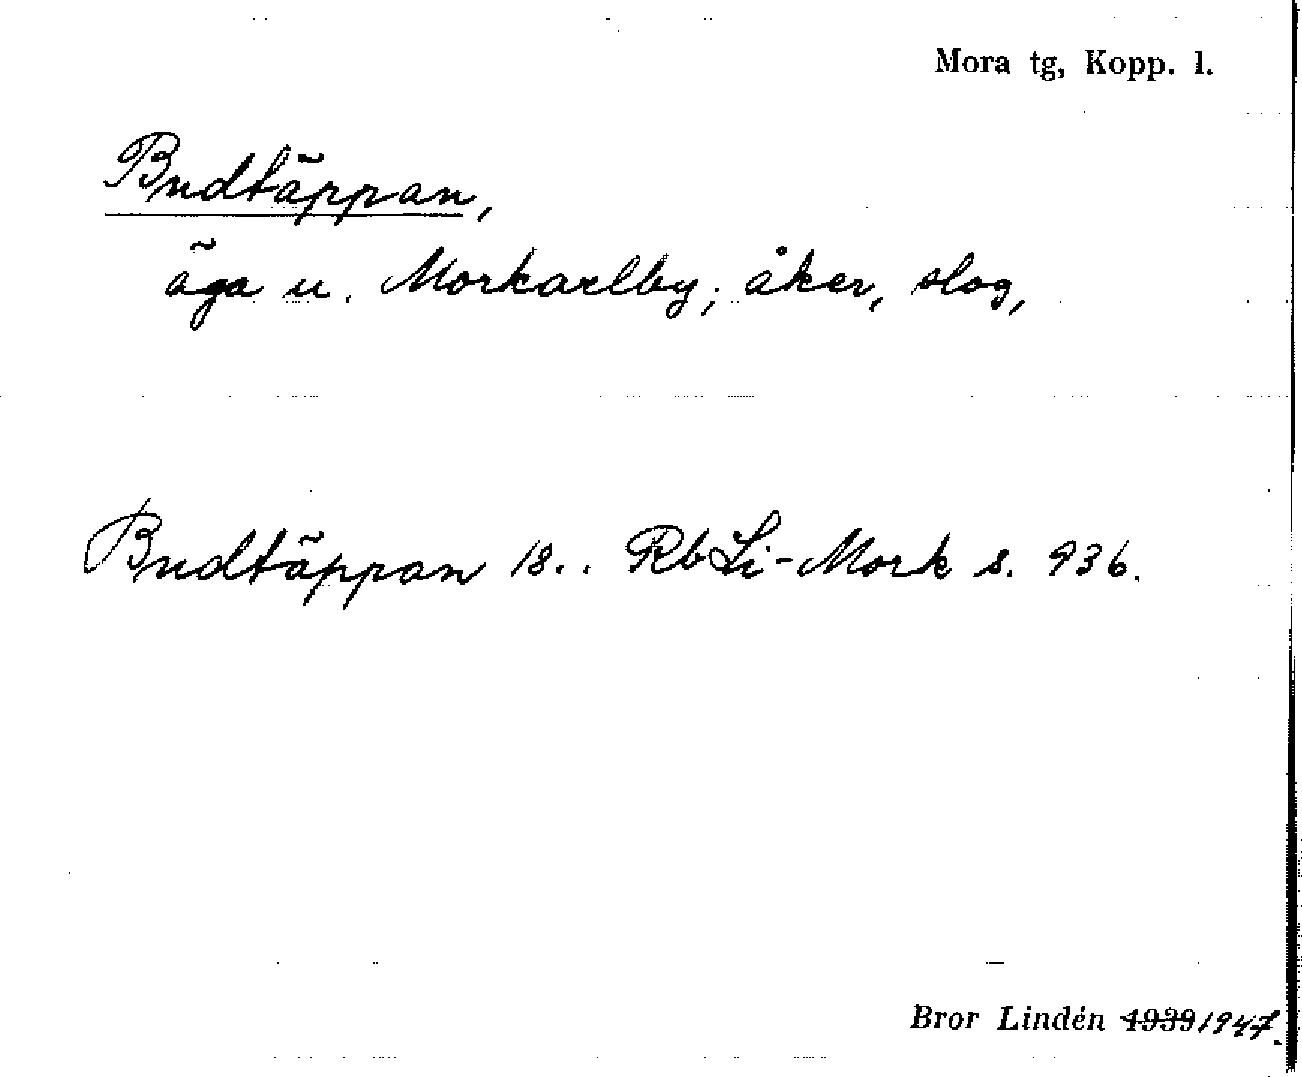 Mora tg, Kopp. l.
Budtäppan,
äga u. Morkarlby; åker, slog,
Budtäppan 18.. RbLi-Mork s. 936.
Bror Lindén 1939 1947.